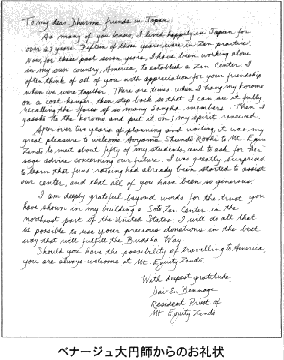 To my dear Dharma friends in Japan,
As many of you know, I lived happily in Japan for
over 23 years. Fifteen of those years were in Zen practice.
Now, for these past seven years, I have been working alone
in my own country, America, to establish a Zen Center. I
often think of all of you with appreciation for your friendship
when we were together. There are times when I hang my koromo
on a coat hanger, then step back so that I can see it fully
recalling the faces of so many sangha members. Then I
gassho to the koromo and put it on, my spirit renewed.
After over two years of planning and waiting, it was my
great pleasure to welcome Aoyama Shundo Roshi to Mt. Equity
Zendo to meet about fifty of my students, and to ask for her
sage advice concerning our future. I was greatly surprised
to learn that had already been started to assist
our center, and that all of you have been so generous.
I am deeply grateful beyond words for the trust you
have shown in my building a Soto Zen Center in the
northeast part of the United States. I will do all that
is possible to use your precious donations in the best
way that will fulfill the Buddha Way.
Should you have the possibility of travelling to America,
you are always welcome at Mt. Equity Zendo.
With deepest gratitude,
Dai-En Bennage
Resident Priest of
Mt. Equity Zendo
ベナージュ大円師からのお礼状